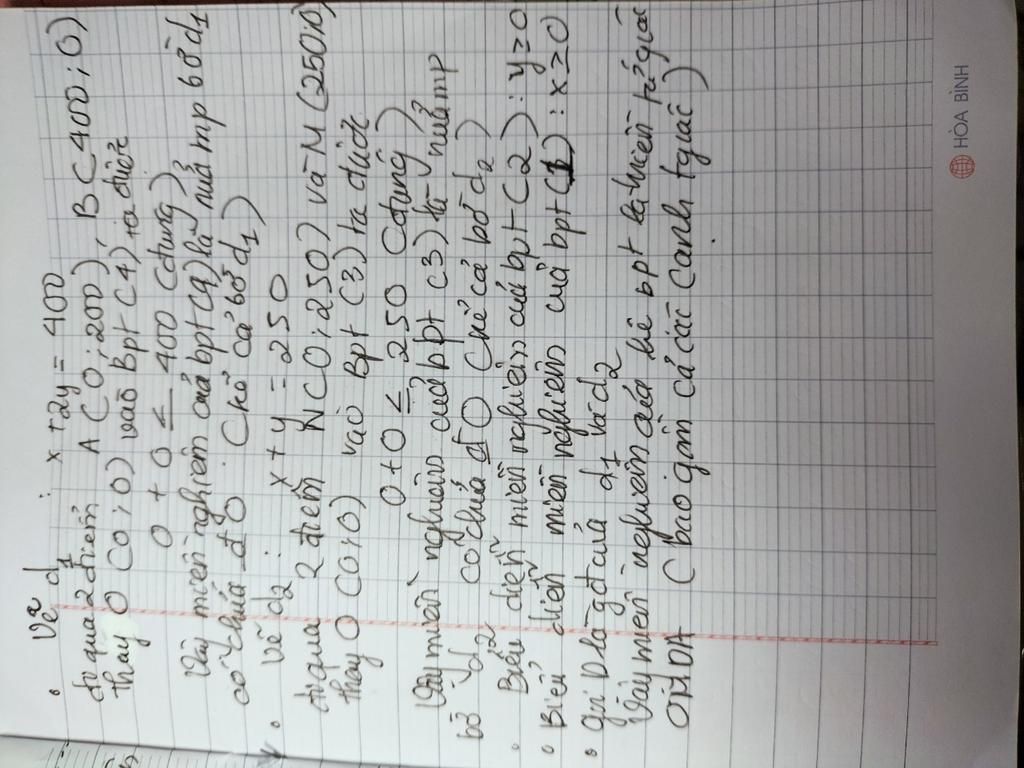 • Vẽ d1 : x + 2y = 400
đi qua 2 điểm A (0;200), B (400;0)
thay O (0;0) vào Bpt (4) ta được
0 + 0 ≤ 400 (đúng)
Vậy miền nghiệm của bpt (4) là nửa mp bờ d1
có chứa đ O (kể cả bờ d1)
• Vẽ d2 : x + y = 250
đi qua 2 điểm N (0;250) và M (250;0)
thay O (0;0) vào Bpt (3) ta được
0 + 0 ≤ 250 (đúng)
Vậy miền nghiệm của bpt (3) là nửa mp
bờ d2 có chứa đ O (kể cả bờ d2)
• Biểu diễn miền nghiệm của bpt (2) : y ≥ 0
• Biểu diễn miền nghiệm của bpt (1) : x ≥ 0
• gọi D là gđ của d1 và d2
Vậy miền nghiệm của hệ bpt là miền tứ giác
OMDA (bao gồm cả các cạnh tgiác)
HÒA BÌNH